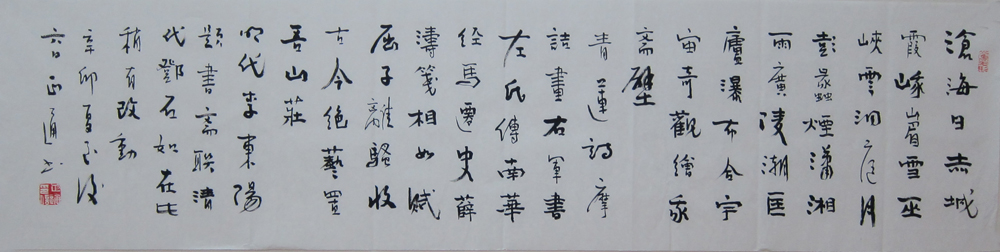 滄海日赤城
霞峨眉雪巫
峽雲洞庭月
彭蠡煙瀟湘
雨廣陵潮匡
廬瀑布合宇
宙奇觀繪我
齋壁
青蓮詩摩
詰畫右軍書
左氏傳南華
經馬遷史薛
濤箋相如賦
屈子離騷收
古今絕藝置
吾山莊
明代李東陽
題書齋联清
代鄧石如在此
稍有改動
辛卯夏至後
六日正道书